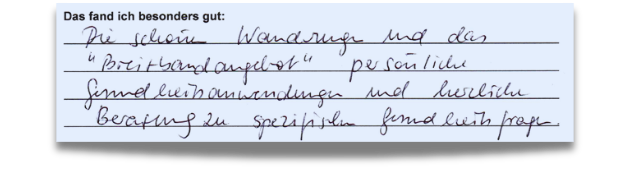 Das fand ich besonders gut:
Die schönen Wanderungen und das
"Breitbandangebot" persönliche
Gesundheitsanwendungen und herzliche
Beratung zu spezifischen Gesundheitsfragen